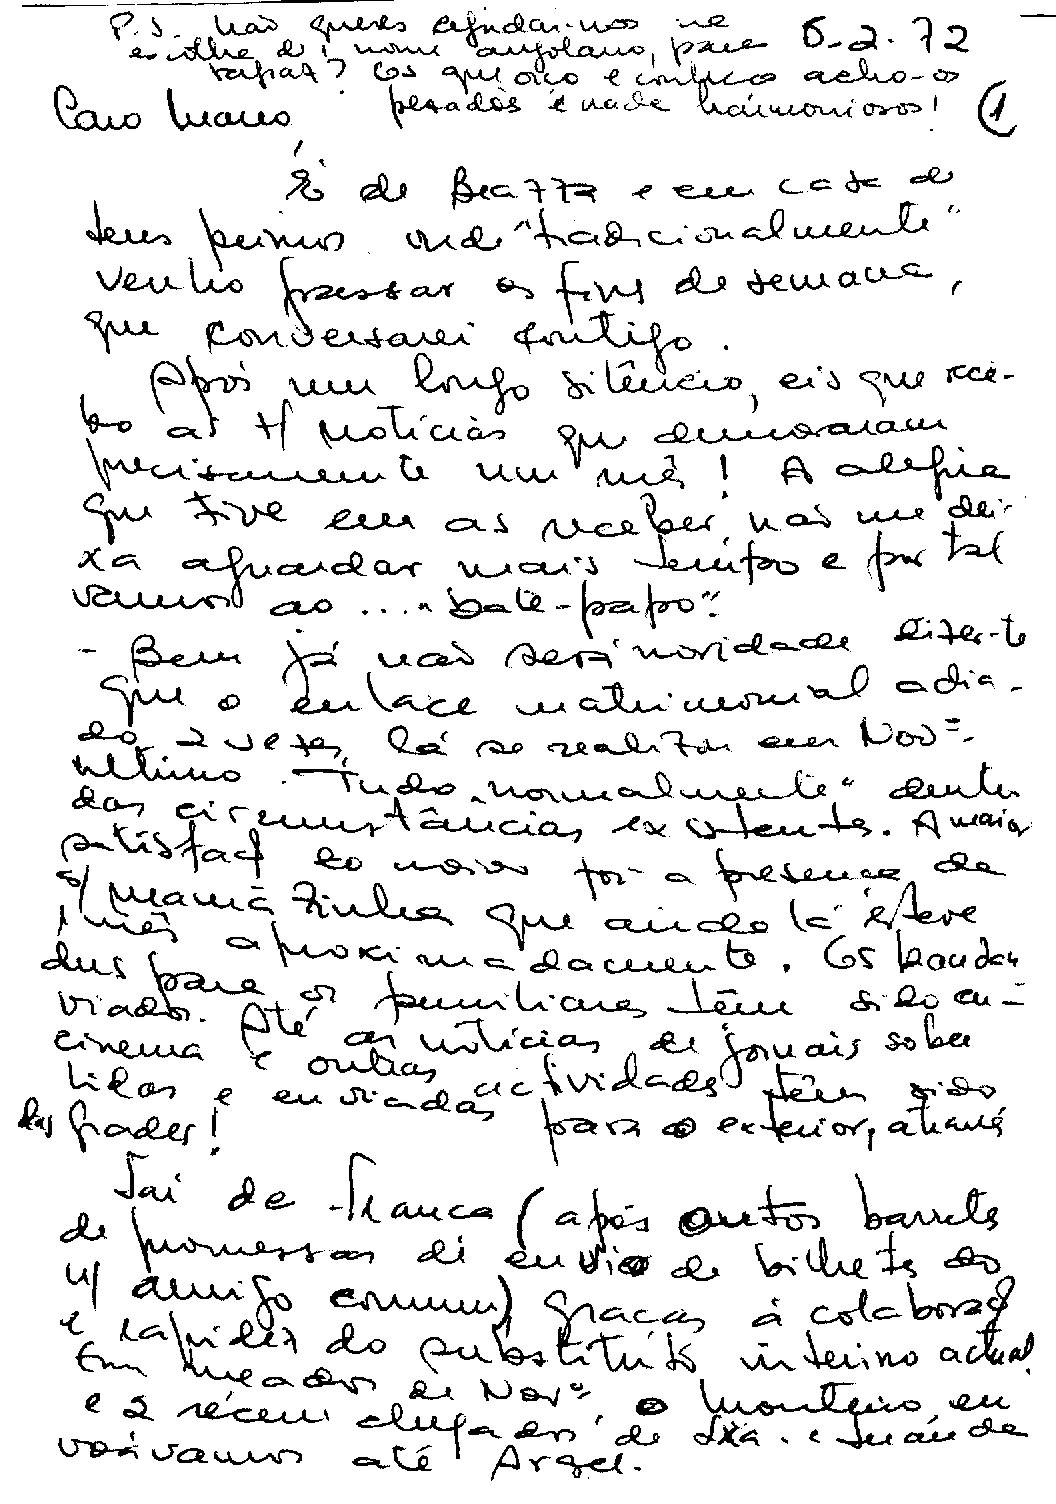 P.S. Não queres ajudar-nos na
escolha de 1 nome angolano, para
rapaz? Os que oiço e conheço acho-os
pesados e nada harmoniosos!
6-2-72
1
Caro Mário,
É de Brazza e em casa de
teus primos onde "tradicionalmente"
venho passar os fins de semana,
que conversarei contigo.
Após um longo silêncio, eis que rece-
bo as t/ notícias que demoraram
precisamente um mês! A alegria
que tive em as receber não me dei-
xa aguardar mais tempo e por tal
vamos ao .... "bate-papo".
- Bem já não será novidade dizer-te
que o enlace matrimonial adia-
do 2 vezes, lá se realizou em Novº
último. Tudo "normalmente" dentro
das circunstâncias existentes. A maior
satisfaç do noivo foi a presença da
s/ mamã Zinha que ainda lá esteve
1 mês aproximadamente. Os
dus para os familiares têm sido en-
viados. Até as notícias de jornais sobre
cinema e outras actividades têm sido
lidas e enviadas para o exterior, através
das grades!
Saí de França (após outros barretes
de promessas de envio de bilhete do
n/ amigo comum) graças à colaboraç
e rapidez do substituto interino actual.
Em meados de Novº, o Monteiro, eu
e 2 récem chegados de Lxa. e Luanda
voávamos até Argel.